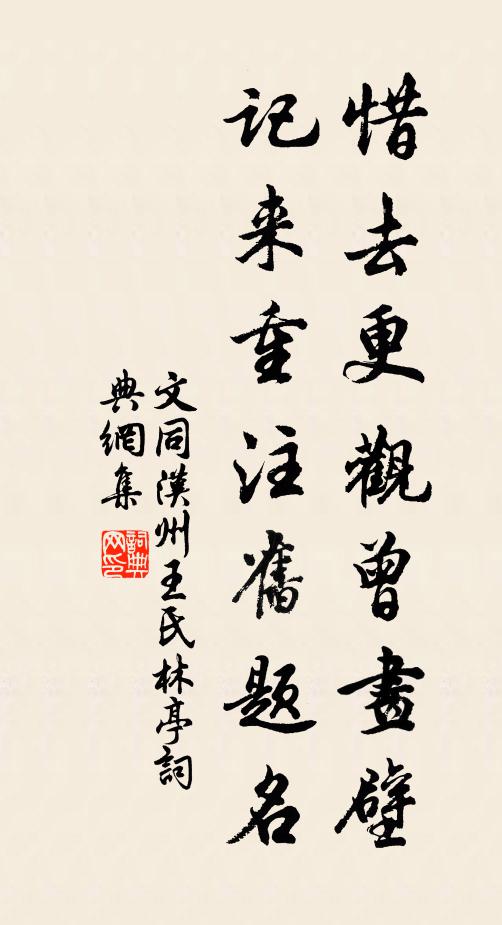 惜去更觀曾畫壁
记来重注舊题名
文同漢州王氏林亭詞
典網集
詞典
网印